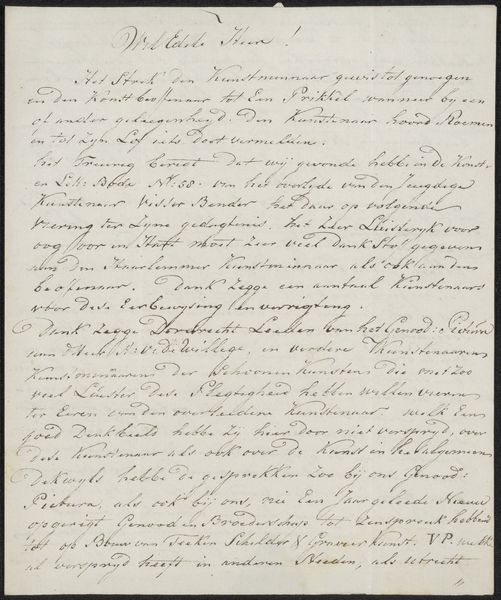 Wel Edele Heer!
Het Strek den Kunstminnaar gewis tot genoegen
en den Konstbeoffenaar tot Een Prikkel wanneer by een
of ander geleegenheyd. Den Kunstenaar hoord Roemen
en tot Zyn Lof iets doet vermelden.
het Treurig berigt dat wij gevonde hebbe in de Konst
en Lett: Bode No: 58. van het overlyde van den Jeugdige
Kunstenaar Visser Bender het daar op volgende
viering ter Zyne gedagtenis. het Zeer Luisteryk voor
oog oor en Hart moet Zeer veel dank Stof gegeven
aan den Haarlemmer Kunstminnaar als ook aan den
beoefenaar. Dank Zegge een aantal Kunstenaars
vóor dese Eerbewysing en verrigting.
Dank Zegge Dordrecht Leeden van het Genood: Pictura
aan d'Heer A: V: de Willige, en verdere Kunstenaaren
Kunstminnaaren der Schoonen Kunsten die met Zoo
veel Luister dese Plegtigheid hebben willen vieren
ter Eeren van den overleedene Kunstenaar welk Een
goed Denkbeeld hebbe Zij hier door niet verspryd, over
dese Kunstenaar als ook over de Kunst in het algemeen
Dekwyls hebbe de gesprekken Zoo bij ons Genood:
Pictura, als ook bij ons, nu Een Jaar geleede Nieuw
opgerigt Genood en Broederschap tot Zenspreuk hebbend
tot op Bouw van Teeken Schilder & Graveer Kunst. VP. welke
al verspryd heeft in anderen Steeden, als utrecht